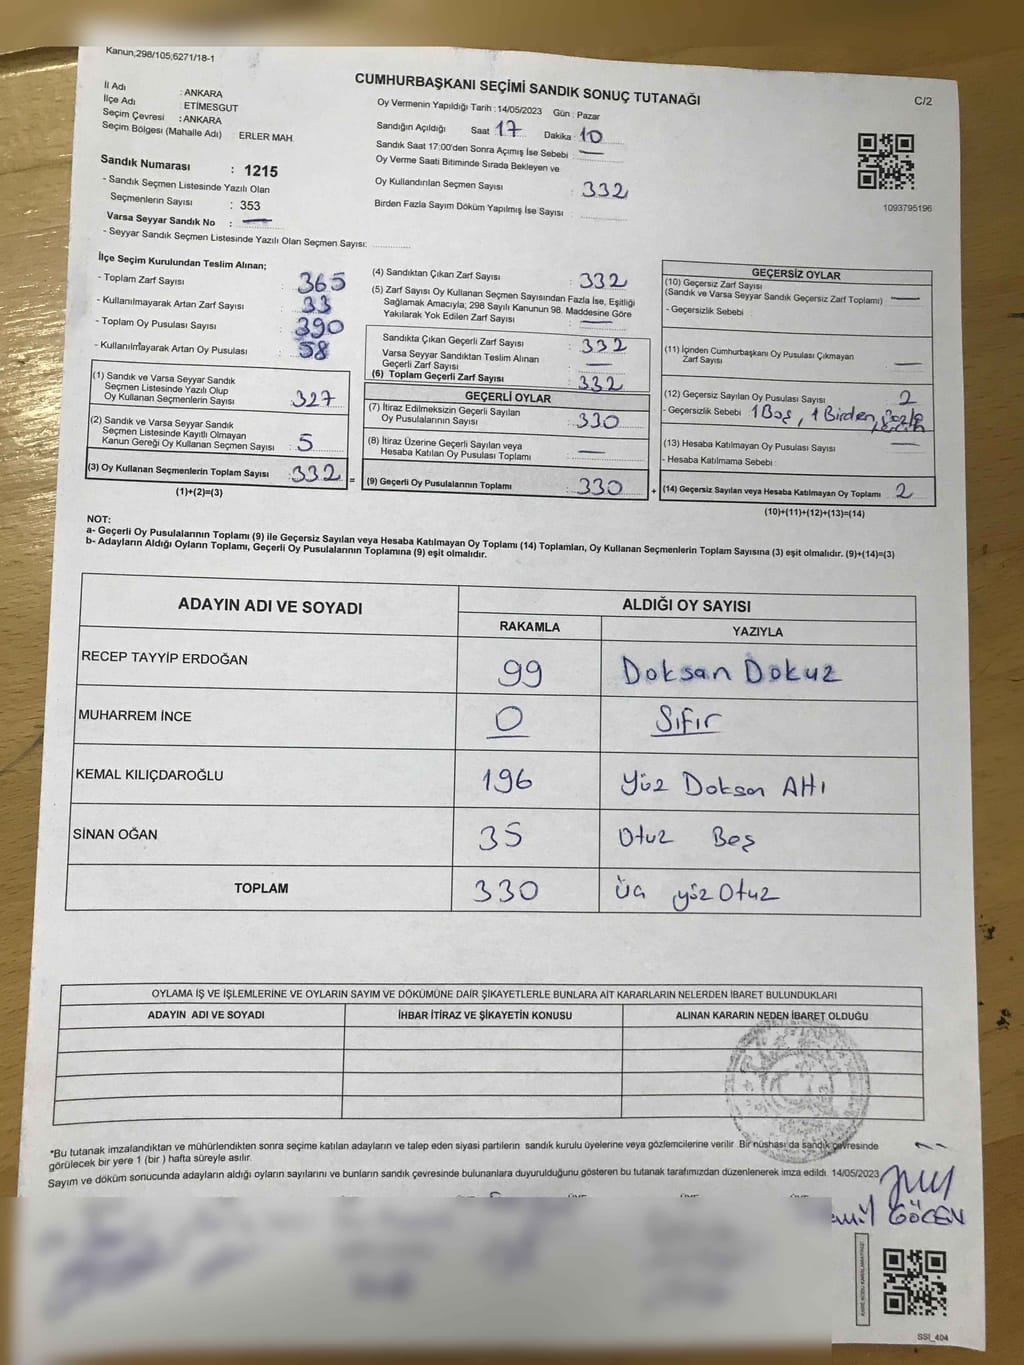 Kanun,298/105;6271/18-1
CUMHURBAŞKANI SEÇİMİ SANDIK SONUÇ TUTANAĞI
C/2
İl Adı : ANKARA
İlçe Adı : ETİMESGUT
Seçim Çevresi : ANKARA
Seçim Bölgesi (Mahalle Adı) : ERLER MAH.
Sandık Numarası : 1215
- Sandık Seçmen Listesinde Yazılı Olan
Seçmenlerin Sayısı : 353
Varsa Seyyar Sandık No : —
- Seyyar Sandık Seçmen Listesinde Yazılı Olan Seçmen Sayısı:
Oy Vermenin Yapıldığı Tarih : 14/05/2023 Gün : Pazar
Sandığın Açıldığı Saat 17 Dakika : 10
Sandık Saat 17:00'den Sonra Açımış İse Sebebi : —
Oy Verme Saati Bitiminde Sırada Bekleyen ve
Oy Kullandırılan Seçmen Sayısı : 332
Birden Fazla Sayım Döküm Yapılmış İse Sayısı :
1093795196
İlçe Seçim Kurulundan Teslim Alınan;
- Toplam Zarf Sayısı : 365
- Kullanılmayarak Artan Zarf Sayısı : 33
- Toplam Oy Pusulası Sayısı : 390
- Kullanılmayarak Artan Oy Pusulası : 58
(1) Sandık ve Varsa Seyyar Sandık
Seçmen Listesinde Yazılı Olup
Oy Kullanan Seçmenlerin Sayısı : 327
(2) Sandık ve Varsa Seyyar Sandık
Seçmen Listesinde Kayıtlı Olmayan
Kanun Gereği Oy Kullanan Seçmen Sayısı : 5
(3) Oy Kullanan Seçmenlerin Toplam Sayısı : 332 =
(1)+(2)=(3)
(4) Sandıktan Çıkan Zarf Sayısı : 332
(5) Zarf Sayısı Oy Kullanan Seçmen Sayısından Fazla İse, Eşitliği
Sağlamak Amacıyla; 298 Sayılı Kanunun 98. Maddesine Göre
Yakılarak Yok Edilen Zarf Sayısı : —
Sandıkta Çıkan Geçerli Zarf Sayısı : 332
Varsa Seyyar Sandıktan Teslim Alınan
Geçerli Zarf Sayısı : —
(6) Toplam Geçerli Zarf Sayısı : 332
GEÇERLİ OYLAR
(7) İtiraz Edilmeksizin Geçerli Sayılan
Oy Pusulalarının Sayısı : 330
(8) İtiraz Üzerine Geçerli Sayılan veya
Hesaba Katılan Oy Pusulası Toplamı : —
(9) Geçerli Oy Pusulalarının Toplamı : 330 +
GEÇERSİZ OYLAR
(10) Geçersiz Zarf Sayısı
(Sandık ve Varsa Seyyar Sandık Geçersiz Zarf Toplamı) : —
- Geçersizlik Sebebi :
(11) İçinden Cumhurbaşkanı Oy Pusulası Çıkmayan
Zarf Sayısı : —
(12) Geçersiz Sayılan Oy Pusulası Sayısı : 2
- Geçersizlik Sebebi : 1 Boş, 1 Birden fazla
(13) Hesaba Katılmayan Oy Pusulası Sayısı : —
- Hesaba Katılmama Sebebi :
(14) Geçersiz Sayılan veya Hesaba Katılmayan Oy Toplamı : 2
(10)+(11)+(12)+(13)=(14)
NOT:
a- Geçerli Oy Pusulalarının Toplamı (9) ile Geçersiz Sayılan veya Hesaba Katılmayan Oy Toplamı (14) Toplamları, Oy Kullanan Seçmenlerin Toplam Sayısına (3) eşit olmalıdır. (9)+(14)=(3)
b- Adayların Aldığı Oyların Toplamı, Geçerli Oy Pusulalarının Toplamına (9) eşit olmalıdır.
ADAYIN ADI VE SOYADI ALDIĞI OY SAYISI
RAKAMLA YAZIYLA
RECEP TAYYİP ERDOĞAN 99 Doksan Dokuz
MUHARREM İNCE 0 Sıfır
KEMAL KILIÇDAROĞLU 196 Yüz Doksan Altı
SİNAN OĞAN 35 Otuz Beş
TOPLAM 330 Üç yüz Otuz
OYLAMA İŞ VE İŞLEMLERİNE VE OYLARIN SAYIM VE DÖKÜMÜNE DAİR ŞİKAYETLERLE BUNLARA AİT KARARLARIN NELERDEN İBARET BULUNDUKLARI
ADAYIN ADI VE SOYADI İHBAR İTİRAZ VE ŞİKAYETİN KONUSU ALINAN KARARIN NEDEN İBARET OLDUĞU
*Bu tutanak imzalandıktan ve mühürlendikten sonra seçime katılan adayların ve talep eden siyasi partilerin sandık kurulu üyelerine veya gözlemcilerine verilir. Bir nüshası da sandık çevresinde
görülecek bir yere 1 (bir ) hafta süreyle asılır.
Sayım ve döküm sonucunda adayların aldığı oyların sayılarını ve bunların sandık çevresinde bulunanlara duyurulduğunu gösteren bu tutanak tarafımızdan düzenlenerek imza edildi. 14/05/2023
GÖCEN
SSI_404